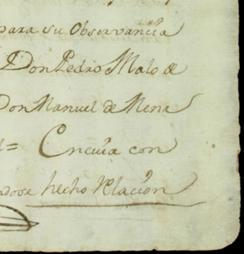 para su Observancia
Don Pedro Malo de
Don Manuel de Mena
con
hecho Relacion